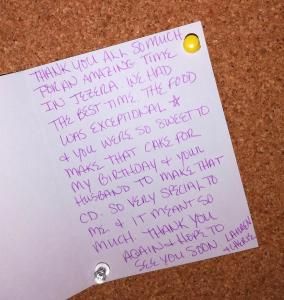 THANK YOU ALL SO MUCH
FOR AN AMAZING TIME
IN JEZERA. WE HAD
THE BEST TIME. THE FOOD
WAS EXCEPTIONAL ★
& YOU WERE SO SWEET TO
MAKE THAT CAKE FOR
MY BIRTHDAY & YOUR
HUSBAND TO MAKE THAT
CD. SO VERY SPECIAL TO
ME & IT MEANT SO
MUCH. THANK YOU
AGAIN & HOPE TO
SEE YOU SOON
LAUREN